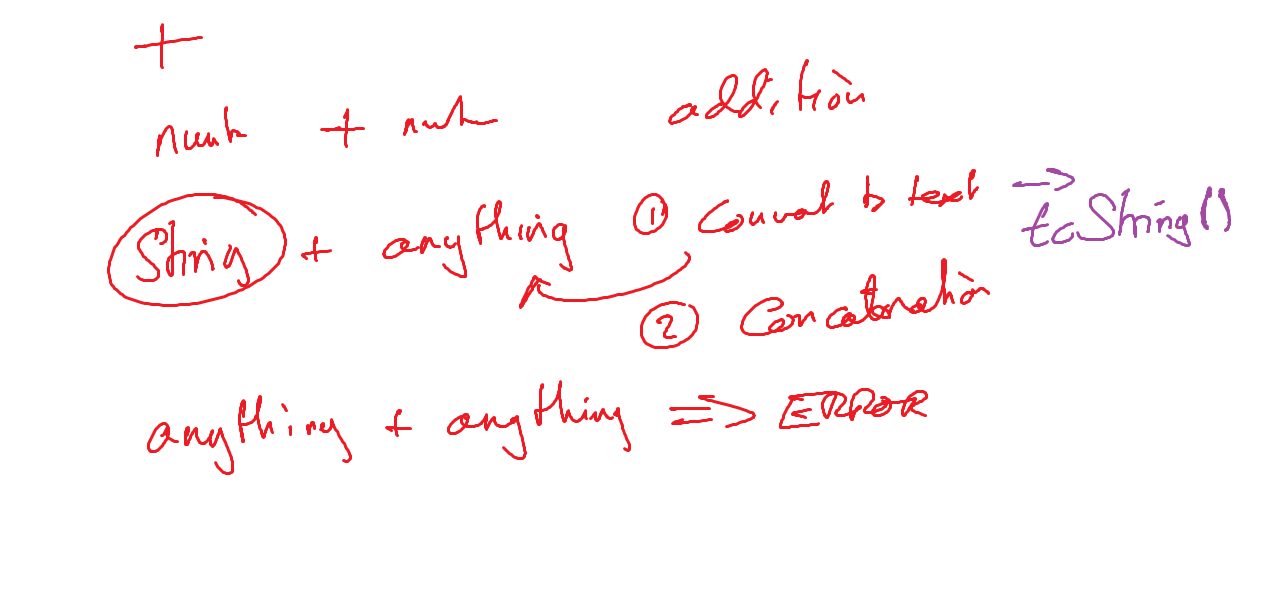 +
num + num addition
String + anything ① Convert to text → toString()
② Concatenation
anything + anything => ERROR